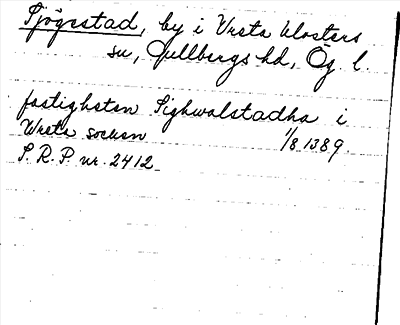 Sjögestad, by i Vreta klosters
sn, Gullbergs hd, Ög. l.
fastigheten Sighwalstadha i
Wreta socken 1/8 1389.
S. R. P. nr. 2412